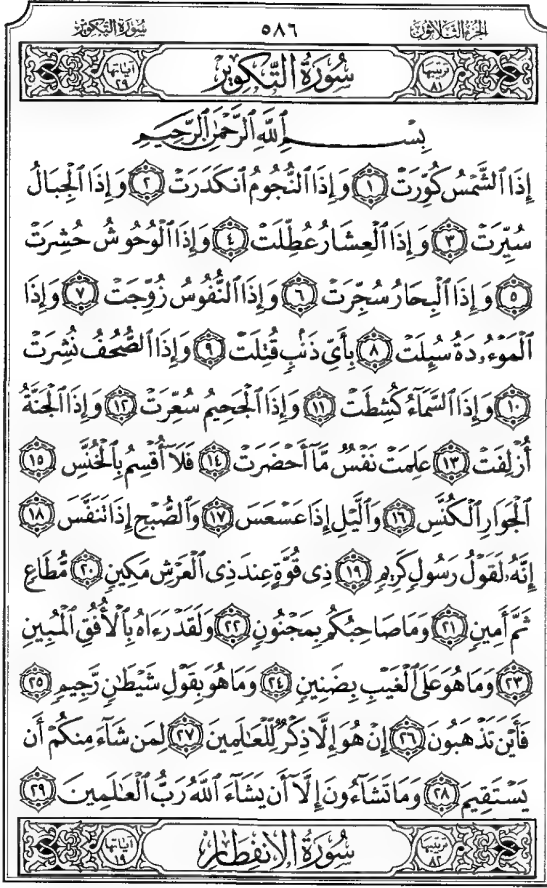 سُورَةُ التَّكْوِيرِ ٥٨٦ الجُزْءُ الثَّلَاثُونَ
آيَاتُهَا ٢٩ سُورَةُ التَّكْوِيرِ تَرْتِيبُهَا ٨١
بِسْمِ ٱللَّهِ ٱلرَّحْمَٰنِ ٱلرَّحِيمِ
إِذَا ٱلشَّمْسُ كُوِّرَتْ ١ وَإِذَا ٱلنُّجُومُ ٱنكَدَرَتْ ٢ وَإِذَا ٱلْجِبَالُ
سُيِّرَتْ ٣ وَإِذَا ٱلْعِشَارُ عُطِّلَتْ ٤ وَإِذَا ٱلْوُحُوشُ حُشِرَتْ
٥ وَإِذَا ٱلْبِحَارُ سُجِّرَتْ ٦ وَإِذَا ٱلنُّفُوسُ زُوِّجَتْ ٧ وَإِذَا
ٱلْمَوْءُۥدَةُ سُئِلَتْ ٨ بِأَيِّ ذَنۢبٍ قُتِلَتْ ٩ وَإِذَا ٱلصُّحُفُ نُشِرَتْ
١٠ وَإِذَا ٱلسَّمَآءُ كُشِطَتْ ١١ وَإِذَا ٱلْجَحِيمُ سُعِّرَتْ ١٢ وَإِذَا ٱلْجَنَّةُ
أُزْلِفَتْ ١٣ عَلِمَتْ نَفْسٌ مَّآ أَحْضَرَتْ ١٤ فَلَآ أُقْسِمُ بِٱلْخُنَّسِ ١٥
ٱلْجَوَارِ ٱلْكُنَّسِ ١٦ وَٱلَّيْلِ إِذَا عَسْعَسَ ١٧ وَٱلصُّبْحِ إِذَا تَنَفَّسَ ١٨
إِنَّهُۥ لَقَوْلُ رَسُولٍ كَرِيمٍ ١٩ ذِى قُوَّةٍ عِندَ ذِى ٱلْعَرْشِ مَكِينٍ ٢٠ مُّطَاعٍ
ثَمَّ أَمِينٍ ٢١ وَمَا صَاحِبُكُم بِمَجْنُونٍ ٢٢ وَلَقَدْ رَءَاهُ بِٱلْأُفُقِ ٱلْمُبِينِ
٢٣ وَمَا هُوَ عَلَى ٱلْغَيْبِ بِضَنِينٍ ٢٤ وَمَا هُوَ بِقَوْلِ شَيْطَٰنٍ رَّجِيمٍ ٢٥
فَأَيْنَ تَذْهَبُونَ ٢٦ إِنْ هُوَ إِلَّا ذِكْرٌ لِّلْعَٰلَمِينَ ٢٧ لِمَن شَآءَ مِنكُمْ أَن
يَسْتَقِيمَ ٢٨ وَمَا تَشَآءُونَ إِلَّآ أَن يَشَآءَ ٱللَّهُ رَبُّ ٱلْعَٰلَمِينَ ٢٩
آيَاتُهَا ١٩ سُورَةُ الِانفِطَارِ تَرْتِيبُهَا ٨٢